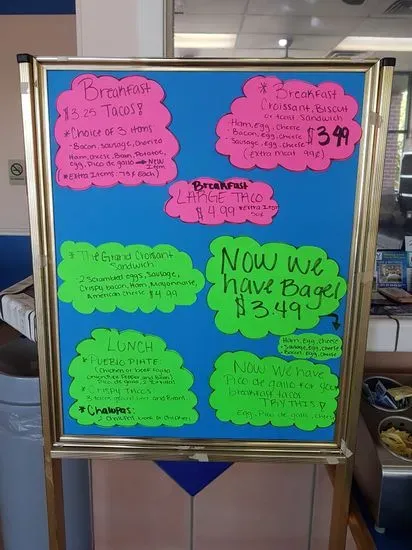 Breakfast
$3.25 Tacos!
*Choice of 3 items
- Bacon, Sausage, Chorizo
Ham, cheese, Bean, Potatoe,
egg, Pico de gallo → New
Item
*Extra Items .75¢ Each)
* Breakfast
Croissant, Biscut
or toast Sandwich
- Ham, egg, cheese
- Bacon, egg, cheese
- Sausage, egg, cheese
$3.49
(extra meat 99¢)
Breakfast
LARGE TACO
$4.99 *Extra Item
50¢
* The Grand Croissant
Sandwich
2 Scrambled eggs, Sausage,
Crispy bacon, Ham, Mayonnaise,
American cheese $4.99
NOW we
have Bagel
$3.49
Ham, Egg, cheese
Sausage, Egg, cheese
Bacon, egg, cheese
LUNCH
* PUEBLO PLATE:
Chicken or beef Fajita
Pico de gallo, 2 tortillas
* Crispy Tacos
3 tacos ground beef and Beans
* Chalupas:
2 Chalupas beef or chicken
NOW we HAVE
Pico de gallo for your
breakfast tacos
TRY THIS!
Egg, Pico de gallo, cheese